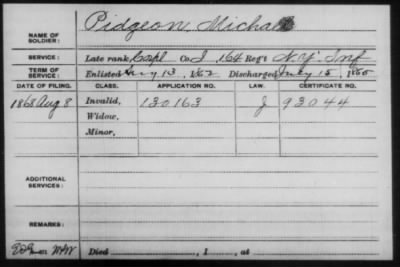 NAME OF SOLDIER: Pidgeon, Michael
SERVICE: Late rank, Corpl Co. I, 164 Reg't N.Y. Inf
TERM OF SERVICE: Enlisted Aug 13, 1862 Discharged July 15, 1865
DATE OF FILING. CLASS. APPLICATION NO. LAW. CERTIFICATE NO.
1868 Aug 8 Invalid, 130163 J 93044
Widow,
Minor,
ADDITIONAL SERVICES:
REMARKS:
Died , 1 , at